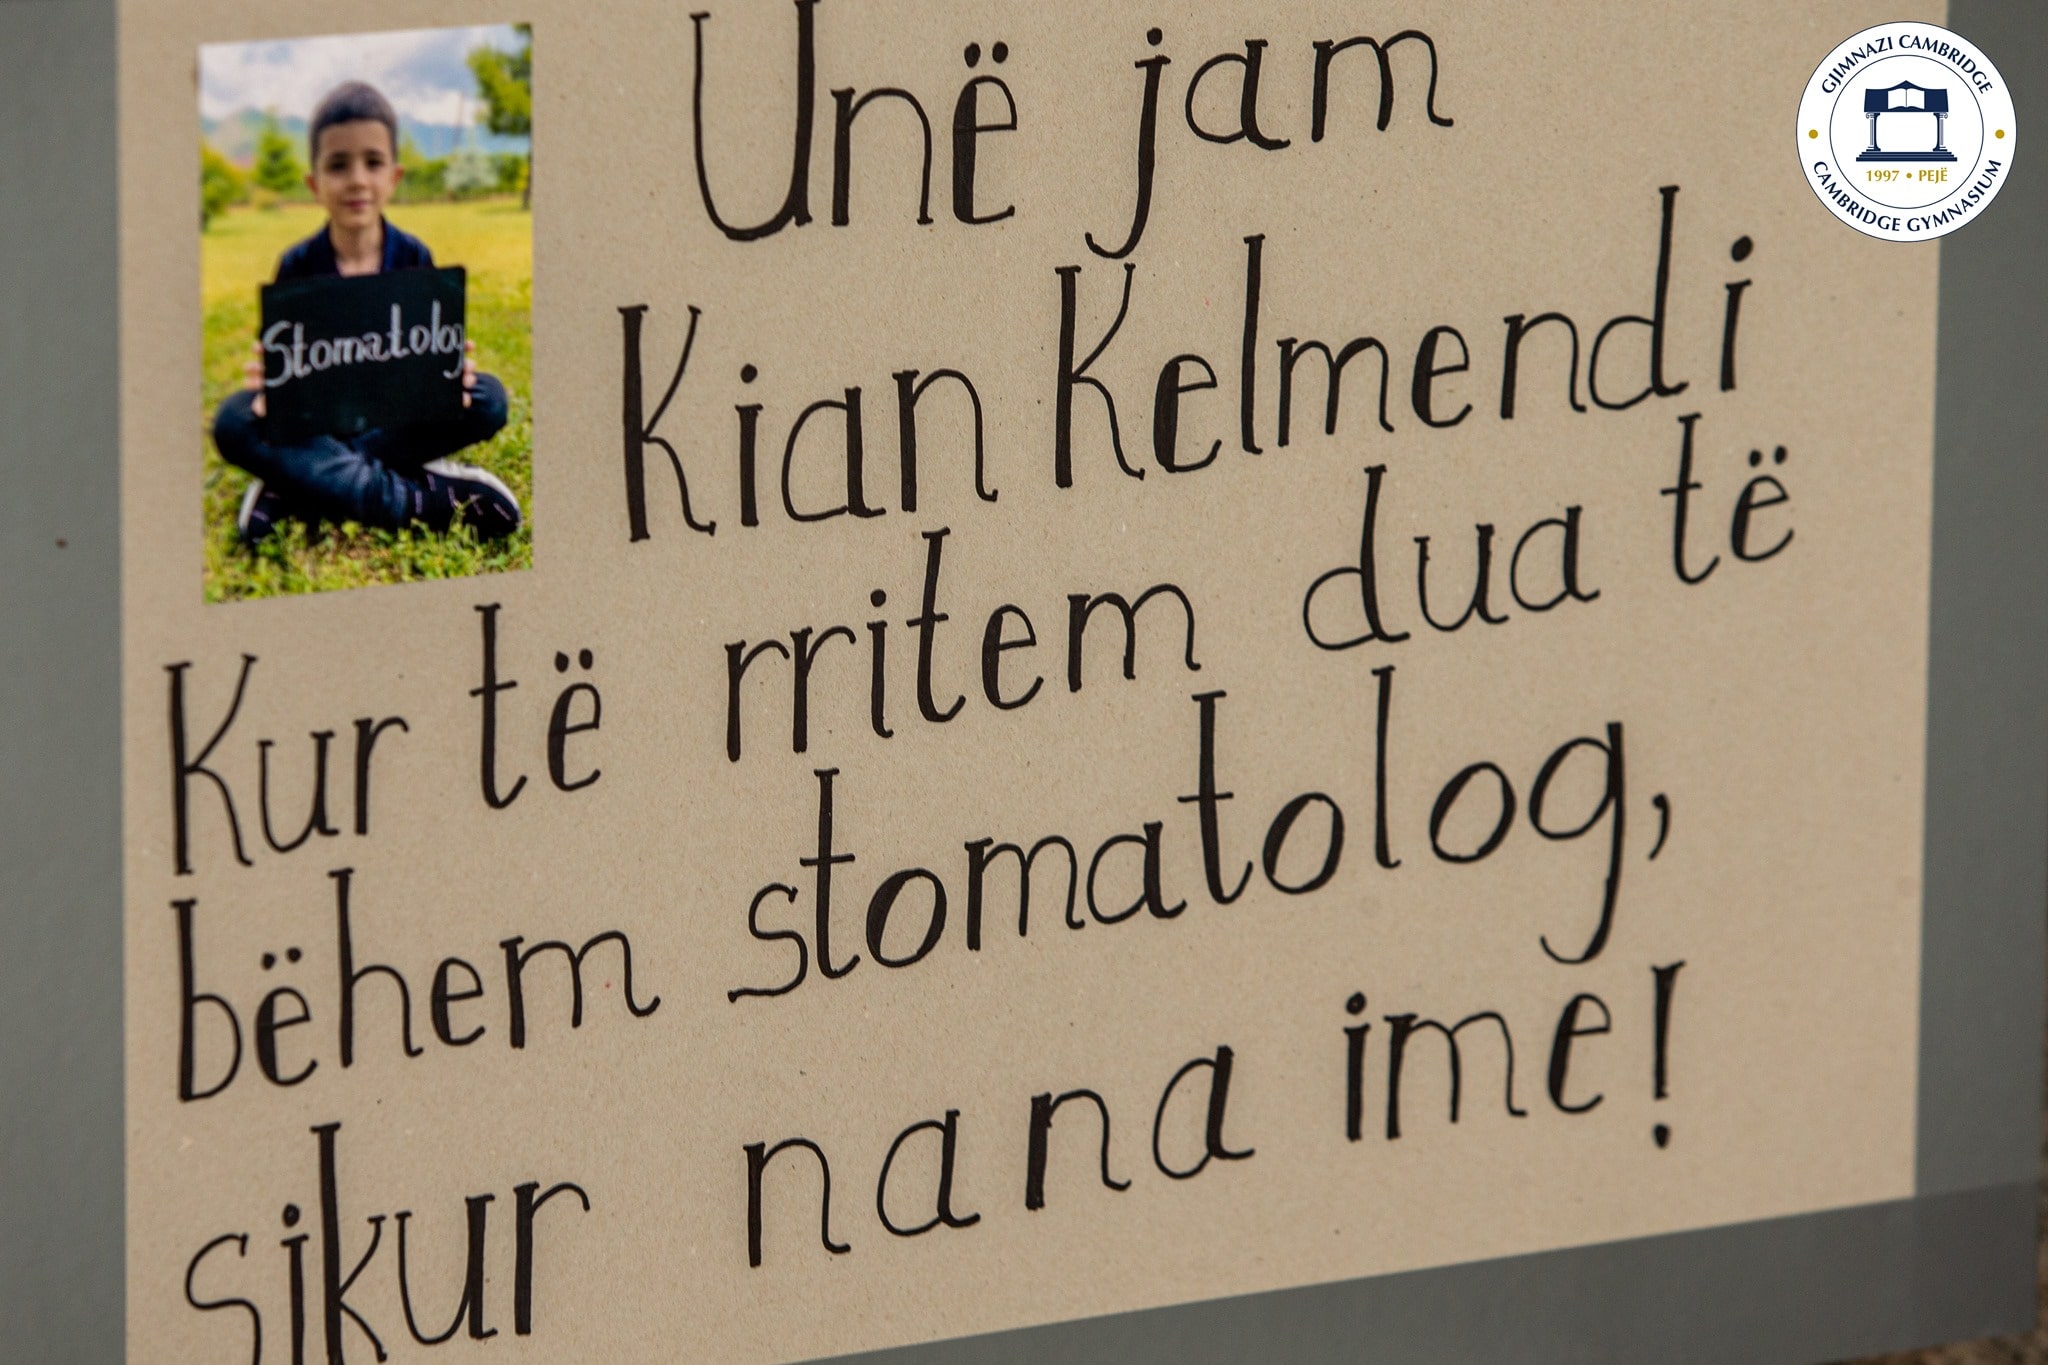 Unë jam
Kian Kelmendi
Kur të rritem dua të
bëhem stomatolog,
sikur nana ime!
Stomatolog
GJIMNAZI CAMBRIDGE
1997 • PEJË
CAMBRIDGE GYMNASIUM